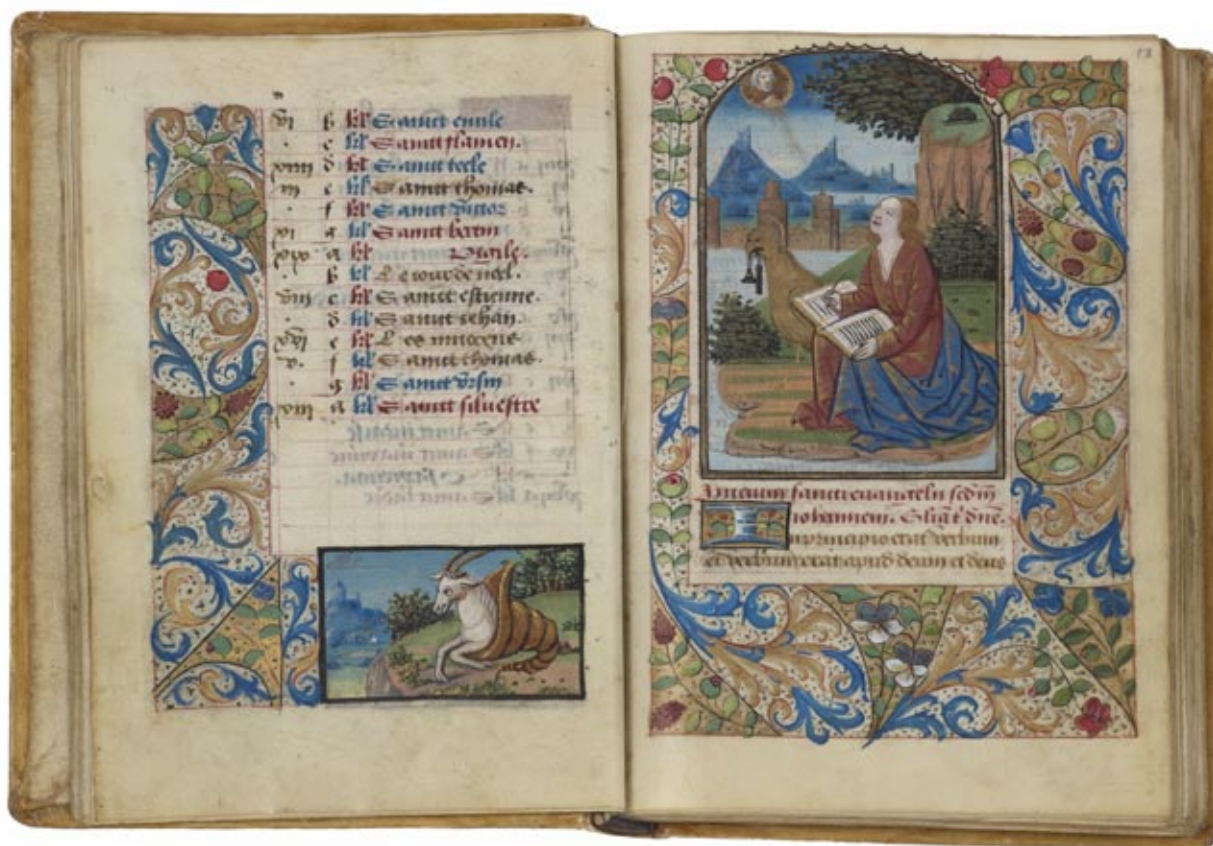 vi b kl' Sainct emile
. c kl' Sainct flamen
xviii d kl' Sainct tecle
vii e kl' Sainct thomas.
. f kl' Sainct victor
g kl' Sainct
a kl' Vigile.
. b kl' Le iour de noel.
viii c kl' Sainct estienne.
. d kl' Sainct iehan
xvi e kl' Les innocens
v. f kl' Sainct thomas.
. g kl' Sainct vrsin
xiii a kl' Sainct siluestre
13
Inicium sancti euangelii scdm
iohannem. Glia t' dne.
In principio erat verbum
et verbum erat apud deum et deus